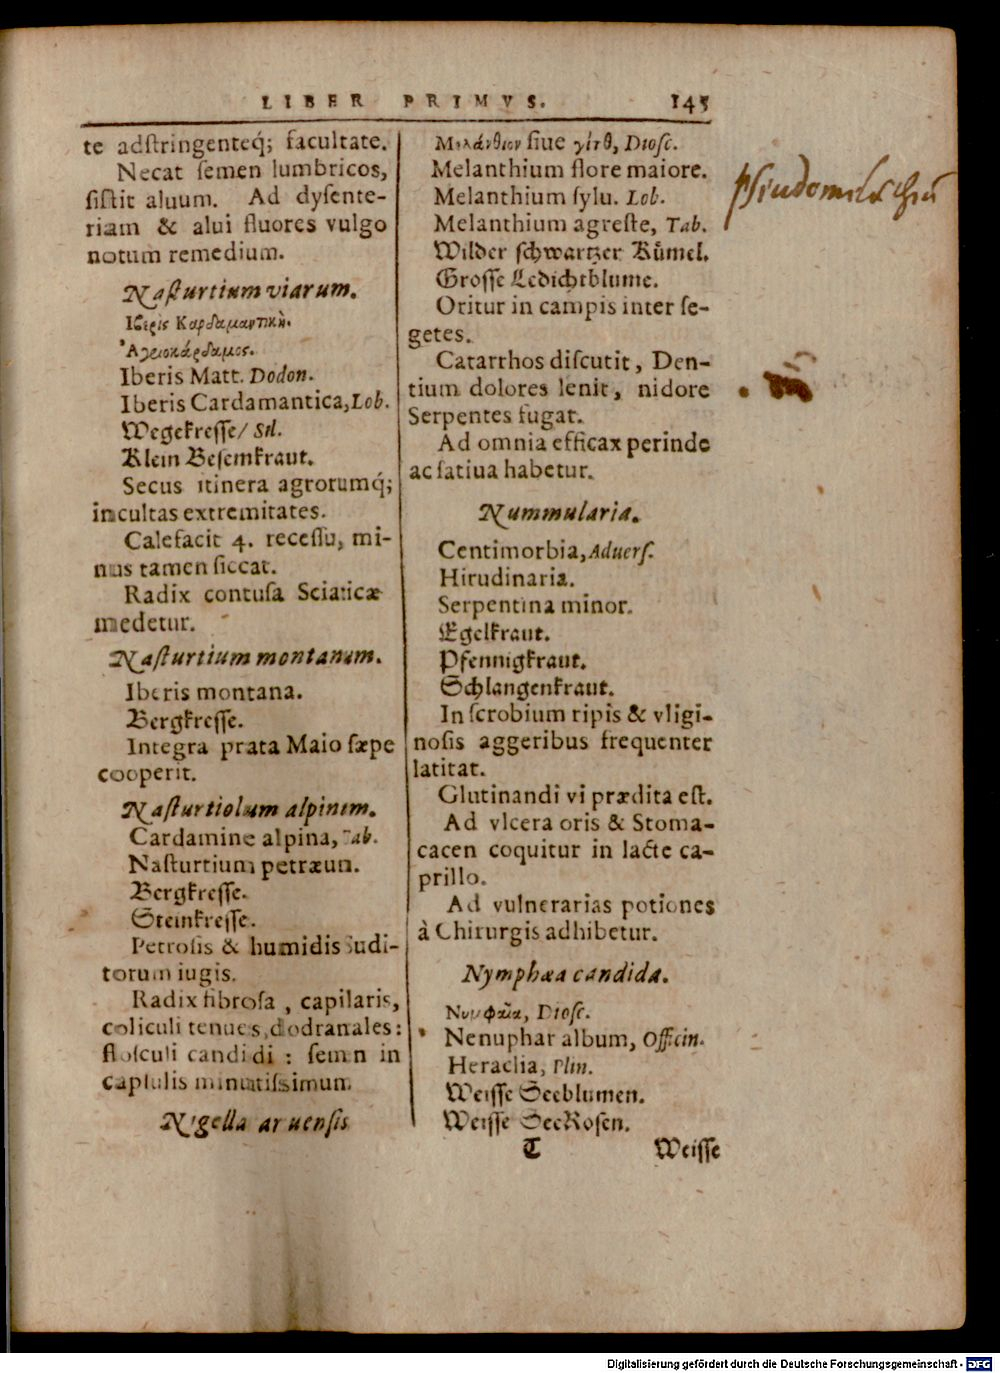 LIBER PRIMVS. 145
te adstringenteq́; facultate.
Necat semen lumbricos,
sistit aluum. Ad dysente-
riam & alui fluores vulgo
notum remedium.
Nasturtium viarum.
Ἰβερὶς Καρδαμαντικὴ.
Ἀγριοκάρδαμος.
Iberis Matt. Dodon.
Iberis Cardamantica, Lob.
Wegekresse/ Sil.
Klein Besemkraut.
Secus itinera agrorumq́;
incultas extremitates.
Calefacit 4. recessu, mi-
nus tamen siccat.
Radix contusa Sciaticæ
medetur.
Nasturtium montanum.
Iberis montana.
Bergkresse.
Integra prata Maio sæpe
cooperit.
Nasturtiolum alpinum.
Cardamine alpina, Tab.
Nasturtium petræum.
Bergkresse.
Steinkresse.
Petrosis & humidis Sudi-
torum iugis.
Radix fibrosa, capilaris,
coliculi tenues, dodranales:
flosculi candidi: semen in
capsulis minutissimum.
Nigella aruensis
Μελάνθιον siue γίτθ, Diosc.
Melanthium flore maiore.
Melanthium sylu. Lob.
Melanthium agreste, Tab.
Wilder schwartzer Kümel.
Grosse Ledichtblume.
Oritur in campis inter se-
getes.
Catarrhos discutit, Den-
tium dolores lenit, nidore
Serpentes fugat.
Ad omnia efficax perinde
ac satiua habetur.
Nummularia.
Centimorbia, Aduers.
Hirudinaria.
Serpentina minor.
Egelkraut.
Pfennigkraut.
Schlangenkraut.
In scrobium ripis & vligi-
nosis aggeribus frequenter
latitat.
Glutinandi vi prædita est.
Ad vlcera oris & Stoma-
cacen coquitur in lacte ca-
prillo.
Ad vulnerarias potiones
à Chirurgis adhibetur.
Nymphæa candida.
Νυμφαῖα, Diosc.
Nenuphar album, Officin.
Heraclia, Plin.
Weisse Seeblumen.
Weisse SeeRosen.
T Weisse
psiudomelāthiū
Digitalisierung gefördert durch die Deutsche Forschungsgemeinschaft - DFG